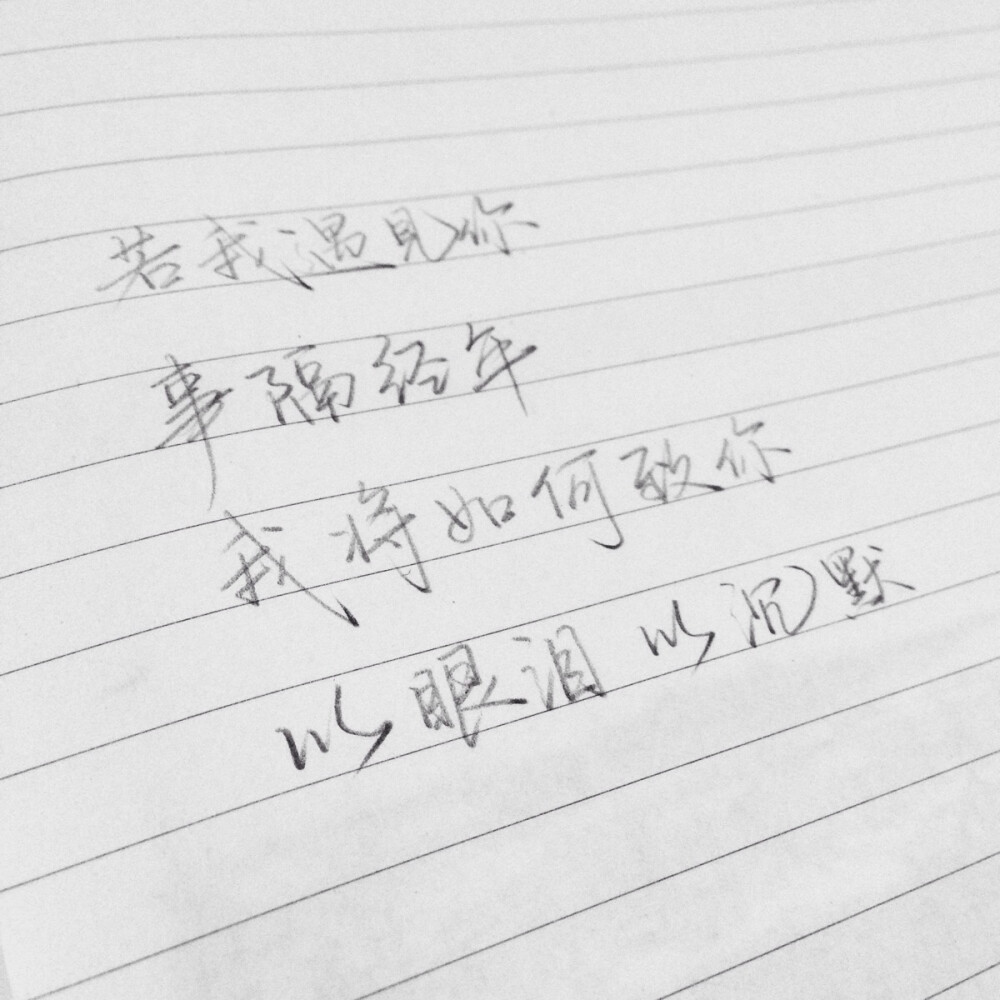 若我遇见你
事隔经年
我将如何致你
以眼泪 以沉默